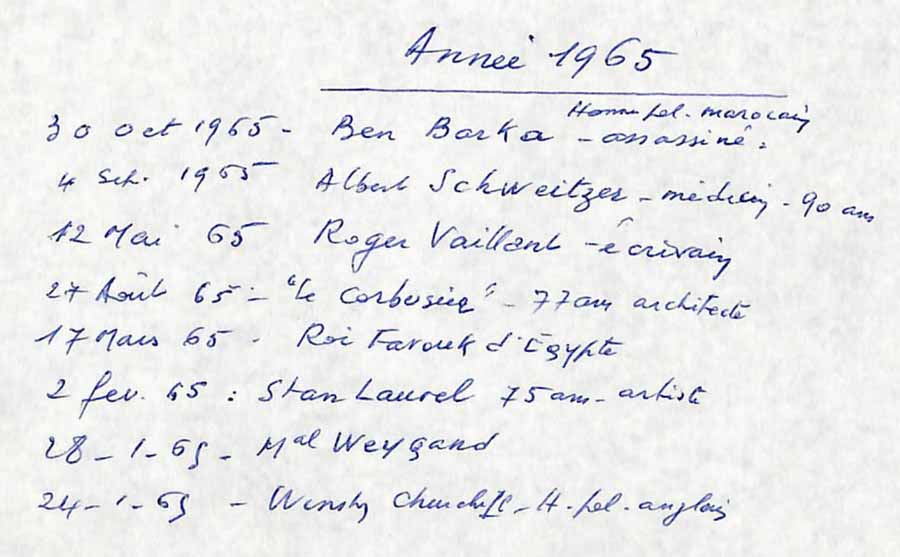 Année 1965
Homme pol. marocain
30 oct 1965 - Ben Barka - assassiné.
4 Sept. 1965 Albert Schweitzer - médecin - 90 ans
12 Mai 65 Roger Vaillant - écrivain
27 Août 65 - "Le Corbusier" - 77 ans architecte
17 Mars 65 - Roi Farouk d'Egypte
2 fev. 65 : Stan Laurel 75 ans - artiste
28-1-65 - Mal Weygand
24-1-65 - Winston Churchill - H. pol. anglais